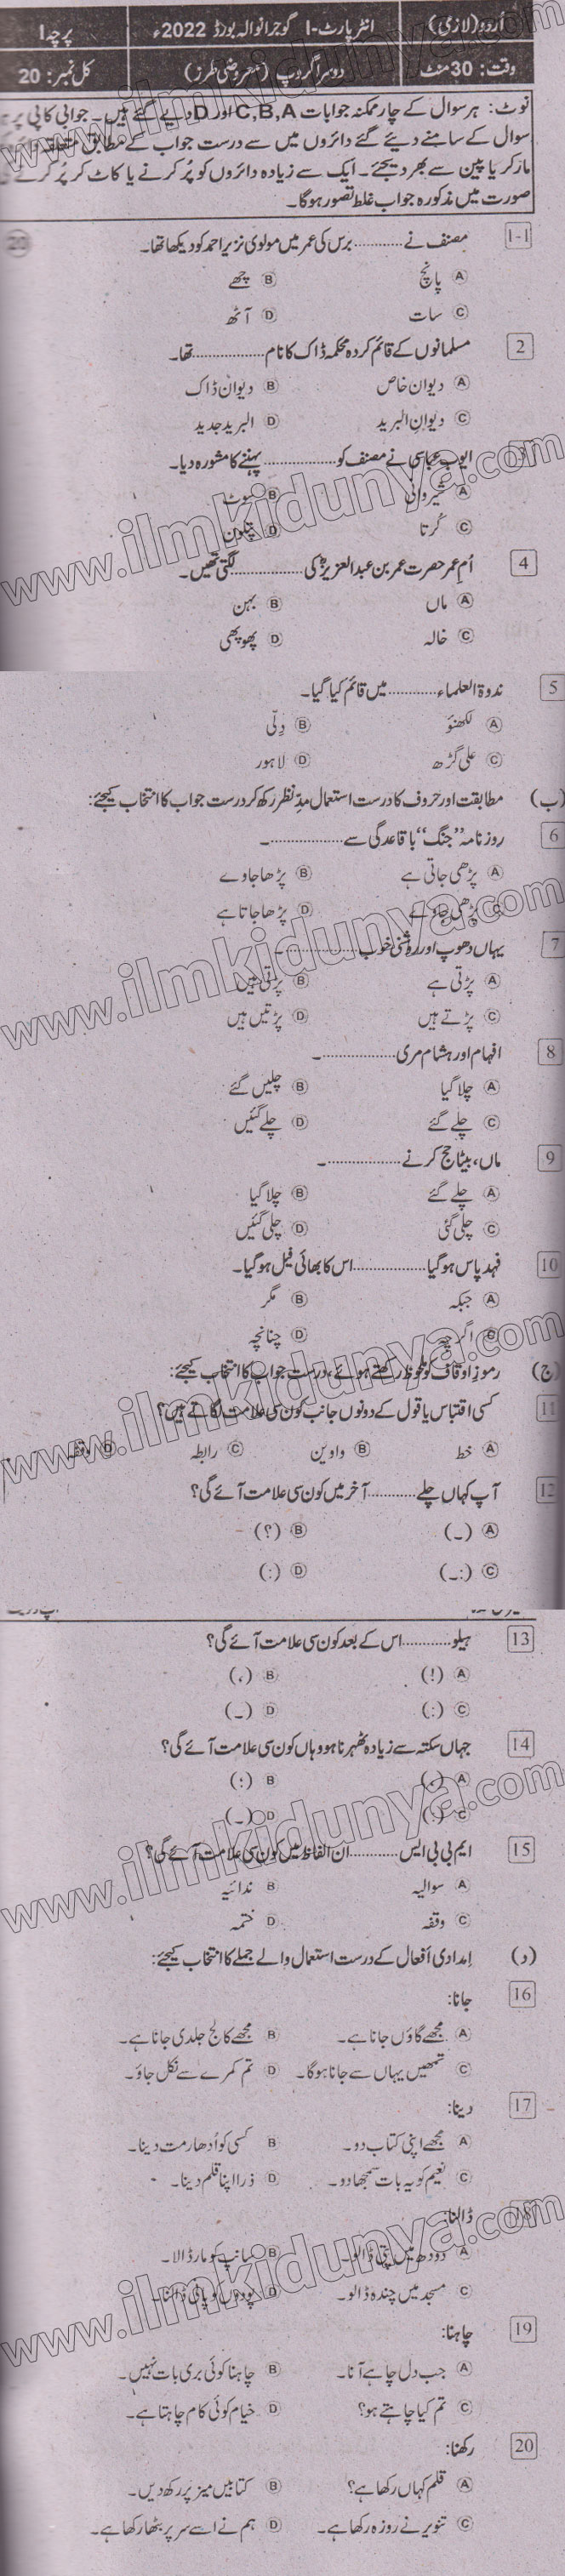 اُردو (لازمی) انٹر پارٹ-I گوجرانوالہ بورڈ 2022ء پرچہ I
وقت: 30 منٹ دوسرا گروپ (معروضی طرز) کل نمبر: 20
نوٹ: ہر سوال کے چار ممکنہ جوابات C,B,A اور D دیے گئے ہیں۔ جوابی کاپی پر ہر
سوال کے سامنے دیئے گئے دائروں میں سے درست جواب کے مطابق متعلقہ
مارکر یا پین سے بھر دیجئے۔ ایک سے زیادہ دائروں کو پُر کرنے یا کاٹ کر پُر کرنے کی
صورت میں مذکورہ جواب غلط تصور ہوگا۔
1-I مصنف نے ............ برس کی عمر میں مولوی نذیر احمد کو دیکھا تھا۔ 20
A پانچ B چھے
C سات D آٹھ
2 مسلمانوں کے قائم کردہ محکمہ ڈاک کا نام ................ تھا۔
A دیوان خاص B دیوان ڈاک
C دیوان البرید D البرید جدید
3 ایوب عباسی نے مصنف کو ................ پہننے کا مشورہ دیا۔
A شیروانی B سوٹ
C کُرتا D پتلون
4 اُم عمر حضرت عمر بن عبدالعزیزؒ کی ................ لگتی تھیں۔
A ماں B بہن
C خالہ D پھوپھی
5 ندوۃ العلماء ............ میں قائم کیا گیا۔
A لکھنؤ B دِلّی
C علی گڑھ D لاہور
(ب) مطابقت اور حروف کا درست استعمال مدِّنظر رکھ کر درست جواب کا انتخاب کیجئے:
6 روزنامہ ”جنگ“ باقاعدگی سے ................ ۔
A پڑھی جاتی ہے B پڑھا جاوے
C پڑھی جاوے D پڑھا جاتا ہے
7 یہاں دھوپ اور روشنی خوب ................ ۔
A پڑتی ہے B پڑتی ہیں
C پڑتے ہیں D پڑتیں ہیں
8 افہام اور ہشام مری ................ ۔
A چلا گیا B چلیں گئے
C چلے گئے D چلے گئیں
9 ماں، بیٹا حج کرنے ................ ۔
A چلے گئے B چلا گیا
C چلی گئی D چلی گئیں
10 فہد پاس ہو گیا ................ اس کا بھائی فیل ہو گیا۔
A جبکہ B مگر
C اگرچہ D چنانچہ
(ج) رموزِ اوقاف کو ملحوظ رکھتے ہوئے، درست جواب کا انتخاب کیجئے:
11 کسی اقتباس یا قول کے دونوں جانب کون سی علامت لگاتے ہیں؟
A خط B واوین C رابطہ D وقفہ
12 آپ کہاں چلے ............ آخر میں کون سی علامت آئے گی؟
A (۔) B (؟)
C (:۔) D (:)
13 ہیلو ............ اس کے بعد کون سی علامت آئے گی؟
A (!) B (،)
C (:) D (۔)
14 جہاں سکتہ سے زیادہ ٹھہرنا ہو وہاں کون سی علامت آئے گی؟
A (،) B (؛)
C (:) D (۔)
15 ایم بی بی ایس ............ ان الفاظ میں کون سی علامت آئے گی؟
A سوالیہ B ندائیہ
C وقفہ D ختمہ
(د) اِمدادی اَفعال کے درست استعمال والے جملے کا انتخاب کیجئے:
16 جانا:
A مجھے گاؤں جانا ہے۔ B مجھے کالج جلدی جانا ہے۔
C تمھیں یہاں سے جانا ہوگا۔ D تم کمرے سے نکل جاؤ۔
17 دینا:
A مجھے اپنی کتاب دو۔ B کسی کو اُدھار مت دینا۔
C نعیم کو یہ بات سمجھا دو۔ D ذرا اپنا قلم دینا۔
18 ڈالنا:
A دودھ میں پتی ڈالو۔ B سانپ کو مار ڈالا۔
C مسجد میں چندہ ڈالو۔ D پودوں کو پانی ڈالنا۔
19 چاہنا:
A جب دل چاہے آنا۔ B چاہنا کوئی بری بات نہیں۔
C تم کیا چاہتے ہو؟ D خیام کوئی کام چاہتا ہے۔
20 رکھنا:
A قلم کہاں رکھا ہے؟ B کتابیں میز پر رکھ دیں۔
C تنویر نے روزہ رکھا ہے۔ D ہم نے اسے سر پر بٹھا رکھا ہے۔
www.ilmkidunya.com
www.ilmkidunya.com
www.ilmkidunya.com
www.ilmkidunya.com
www.ilmkidunya.com
www.ilmkidunya.com